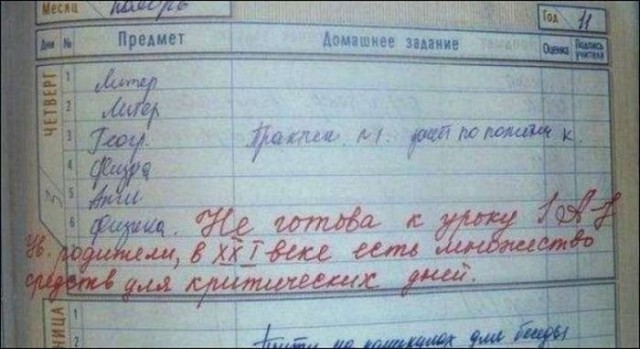 Месяц ноябрь Год 11
Дни № Предмет Домашнее задание Оценка Подпись учителя
ЧЕТВЕРГ
3
1 Литер
2 Литер
3 Геогр. по политич к.
4 Физра
5 Англ
6 Физика. Не готова к уроку
Ув. родители, в XXI веке есть множество
средств для критических дней.
НИЦА
1
2 на каникулах для беседы